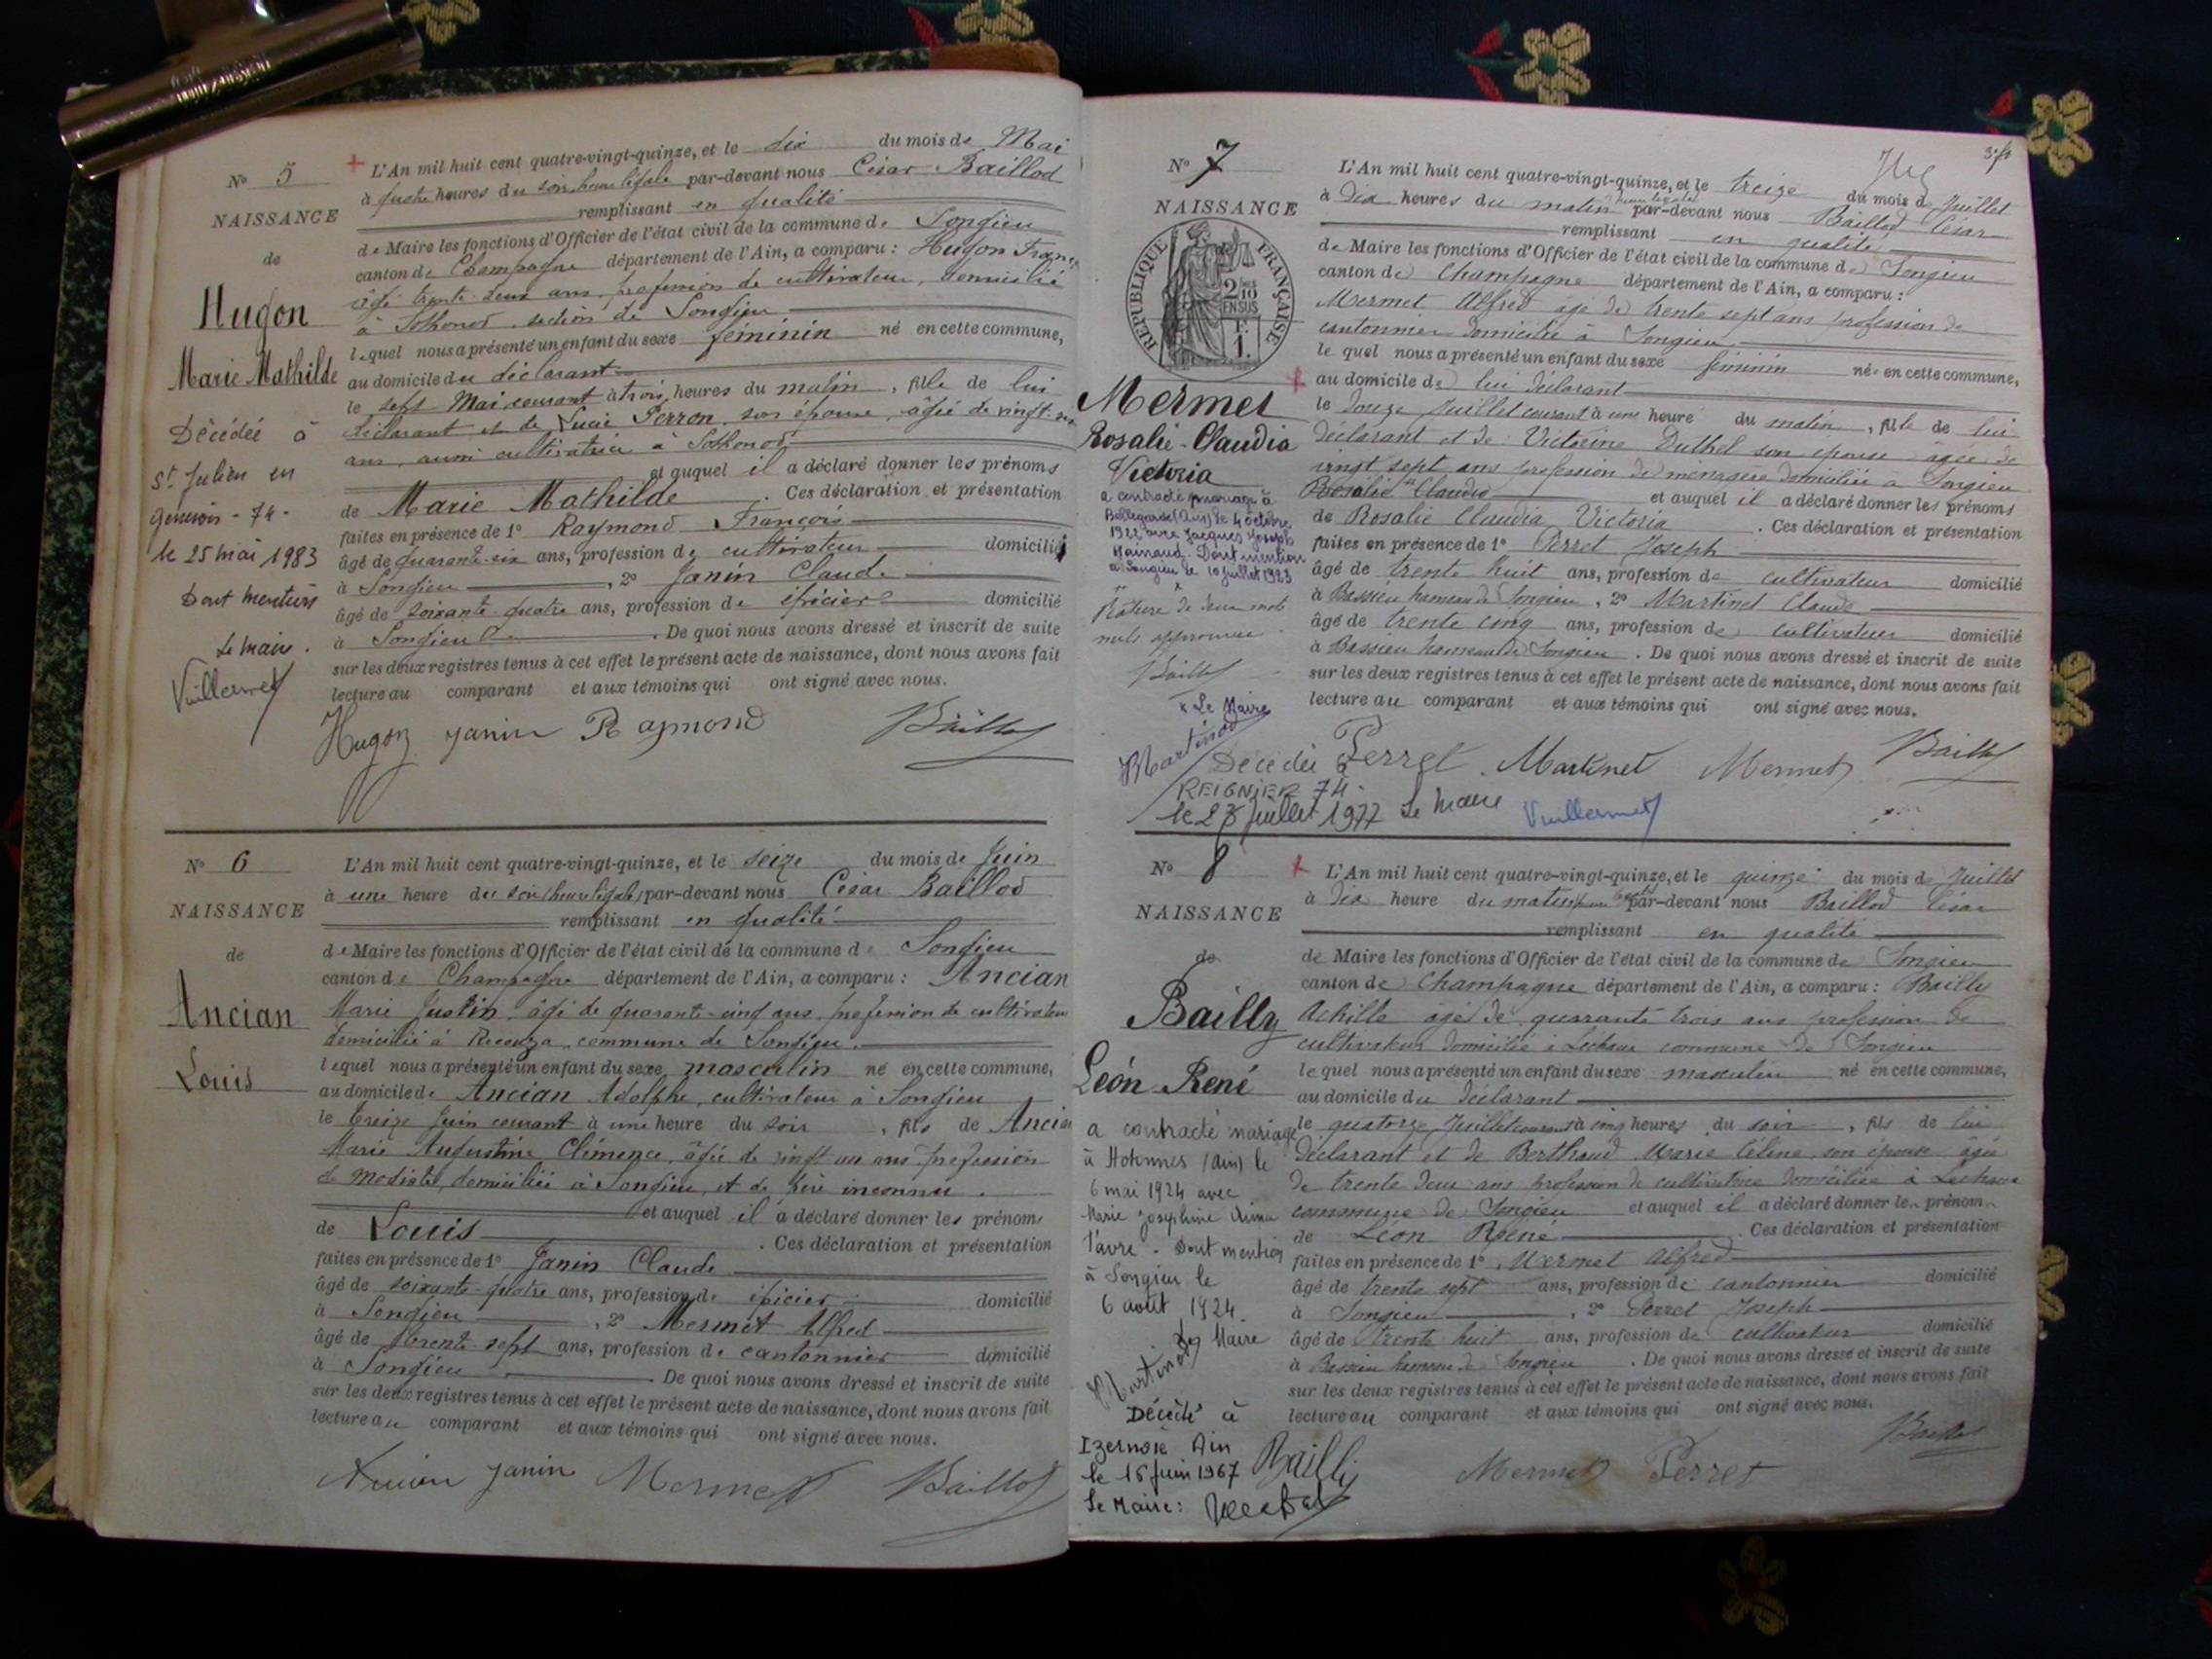 N° 5
NAISSANCE
de
Hugon
Marie Mathilde
Décédée à
St Julien en
genevois - 74 -
le 25 mai 1983
Dont mention
Le maire.
Vuillermet
L'An mil huit cent quatre-vingt-quinze, et le dix du mois de Mai
à quatre heures du soir, heure légale par-devant nous César Baillod
remplissant en qualité
de Maire les fonctions d'Officier de l'état civil de la commune de Songieu
canton de Champagne département de l'Ain, a comparu : Hugon Franç
âgé trente deux ans, profession de cultivateur, domicilié
à Sothonod, section de Songieu
lequel nous a présenté un enfant du sexe féminin né en cette commune,
au domicile du déclarant
le sept Mai courant à trois heures du matin, fille de lui
déclarant et de Lucie Perron, son épouse, âgée de vingt-
ans, aussi cultivatrice à Sothonod
et auquel il a déclaré donner les prénoms
de Marie Mathilde . Ces déclaration et présentation
faites en présence de 1° Raymond François
âgé de quarante-six ans, profession de cultivateur domicilié
à Songieu , 2° Janin Claude
âgé de soixante-quatre ans, profession de épicier domicilié
à Songieu . De quoi nous avons dressé et inscrit de suite
sur les deux registres tenus à cet effet le présent acte de naissance, dont nous avons fait
lecture au comparant et aux témoins qui ont signé avec nous.
Hugon Janin Raymond Baillod
N° 6
NAISSANCE
de
Ancian
Louis
L'An mil huit cent quatre-vingt-quinze, et le seize du mois de Juin
à une heure du soir (heure légale) par-devant nous César Baillod
remplissant en qualité
de Maire les fonctions d'Officier de l'état civil de la commune de Songieu
canton de Champagne département de l'Ain, a comparu : Ancian
Marie Justin, âgé de quarante-cinq ans, profession de cultivateur
domicilié à commune de Songieu.
lequel nous a présenté un enfant du sexe masculin né en cette commune,
au domicile de Ancian Adolphe, cultivateur à Songieu
le treize Juin courant à une heure du soir , fils de Ancian
Marie Augustine Clémence, âgée de vingt un ans, profession
de modiste, domiciliée à Songieu, et de père inconnu.
et auquel il a déclaré donner les prénoms
de Louis . Ces déclaration et présentation
faites en présence de 1° Janin Claude
âgé de soixante-quatre ans, profession de épicier domicilié
à Songieu , 2° Mermet Alfred
âgé de trente sept ans, profession de cantonnier domicilié
à Songieu . De quoi nous avons dressé et inscrit de suite
sur les deux registres tenus à cet effet le présent acte de naissance, dont nous avons fait
lecture au comparant et aux témoins qui ont signé avec nous.
Ancian Janin Mermet Baillod
N° 7
NAISSANCE
de
RÉPUBLIQUE FRANÇAISE
2/10
EN SUS
F.
1.
Mermet
Rosalie-Claudia
Victoria
a contracté mariage à
Bellegarde (Ain) le 4 octobre
1922 avec Jacques Joseph
Dont mention
à Songieu le 10 juillet 1923
Rature de deux mots
nuls approuvée
Baillod
Le Maire
Martinod
Décédée
REIGNIER 74.
le 28 Juillet 1977 Le Maire Vuillermet
L'An mil huit cent quatre-vingt-quinze, et le treize du mois de Juillet
à Dix heures du matin heure légale par-devant nous Baillod César
remplissant en qualité
de Maire les fonctions d'Officier de l'état civil de la commune de Songieu
canton de Champagne département de l'Ain, a comparu :
Mermet Alfred âgé de trente sept ans profession de
cantonnier domicilié à Songieu
lequel nous a présenté un enfant du sexe féminin née en cette commune,
au domicile de lui déclarant
le Douze Juillet courant à une heure du matin, fille de lui
déclarant et de Victorine Duthel son épouse âgée de
vingt sept ans profession de ménagère domiciliée à Songieu
Rosalie Claudia et auquel il a déclaré donner les prénoms
de Rosalie Claudia Victoria . Ces déclaration et présentation
faites en présence de 1° Perret Joseph
âgé de trente huit ans, profession de cultivateur domicilié
à Bassieu hameau de Songieu , 2° Martinet Claude
âgé de trente cinq ans, profession de cultivateur domicilié
à Bassieu hameau de Songieu . De quoi nous avons dressé et inscrit de suite
sur les deux registres tenus à cet effet le présent acte de naissance, dont nous avons fait
lecture au comparant et aux témoins qui ont signé avec nous.
Perret Martinet Mermet Baillod
N° 8
NAISSANCE
de
Bailly
Léon René
a contracté mariage
à Hotonnes (Ain) le
6 mai 1924 avec
Marie Joséphine
. Dont mention
à Songieu le
6 août 1924
Le Maire
Martinod
Décédé à
Izernore Ain
le 16 juin 1967
Le Maire :
L'An mil huit cent quatre-vingt-quinze, et le quinze du mois de Juillet
à Dix heure du matin par-devant nous Baillod César
remplissant en qualité
de Maire les fonctions d'Officier de l'état civil de la commune de Songieu
canton de Champagne département de l'Ain, a comparu : Bailly
Achille âgé de quarante trois ans profession de
cultivateur domicilié à Lechaux commune de Songieu
lequel nous a présenté un enfant du sexe masculin né en cette commune,
au domicile du déclarant
le quatorze Juillet courant à cinq heures du soir , fils de lui
déclarant et de Berthaud Marie Céline, son épouse âgée
de trente deux ans profession de cultivatrice domiciliée à Lechaux
commune de Songieu et auquel il a déclaré donner les prénoms
de Léon René . Ces déclaration et présentation
faites en présence de 1° Mermet Alfred
âgé de trente sept ans, profession de cantonnier domicilié
à Songieu , 2° Perret Joseph
âgé de trente huit ans, profession de cultivateur domicilié
à Bassieu hameau de Songieu . De quoi nous avons dressé et inscrit de suite
sur les deux registres tenus à cet effet le présent acte de naissance, dont nous avons fait
lecture au comparant et aux témoins qui ont signé avec nous.
Bailly Mermet Perret Baillod